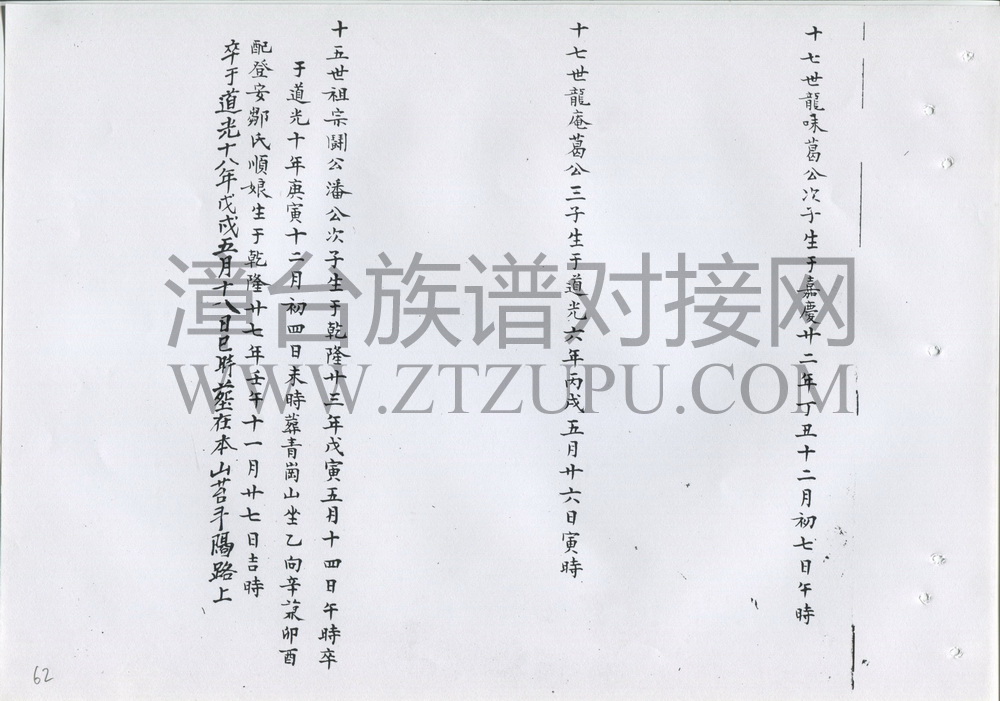 十七世龍味葛公次子生于嘉慶廿二年丁丑十二月初七日午時
十七世龍庵葛公三子生于道光六年丙戌五月廿六日寅時
十五世祖宗闘公潘公次子生于乾隆廿三年戊寅五月十四日午時卒
于道光十年庚寅十二月初四日未時葬青崗山坐乙向辛兼卯酉
配登安鄒氏順娘生于乾隆廿七年壬午十一月廿七日吉時
卒于道光十八年戊戌五月十八日巳時塟在本山苔斗隔路上
漳台族谱对接网
WWW.ZTZUPU.COM
62